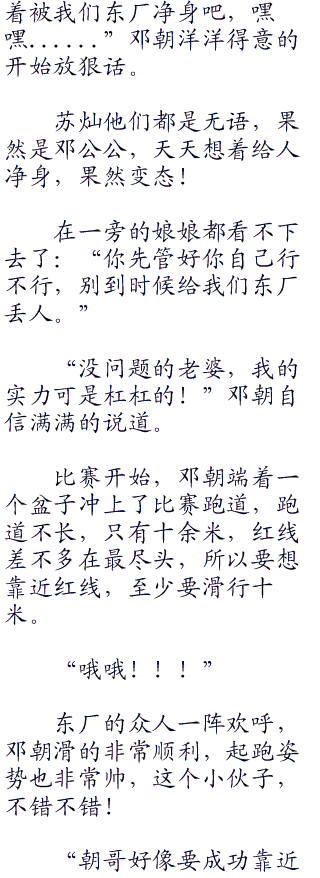 着被我们东厂净身吧，嘿
嘿......”邓朝洋洋得意的
开始放狠话。
苏灿他们都是无语，果
然是邓公公，天天想着给人
净身，果然变态！
在一旁的娘娘都看不下
去了：“你先管好你自己行
不行，别到时候给我们东厂
丢人。”
“没问题的老婆，我的
实力可是杠杠的！”邓朝自
信满满的说道。
比赛开始，邓朝端着一
个盆子冲上了比赛跑道，跑
道不长，只有十余米，红线
差不多在最尽头，所以要想
靠近红线，至少要滑行十
米。
“哦哦！！！”
东厂的众人一阵欢呼，
邓朝滑的非常顺利，起跑姿
势也非常帅，这个小伙子，
不错不错！
“朝哥好像要成功靠近